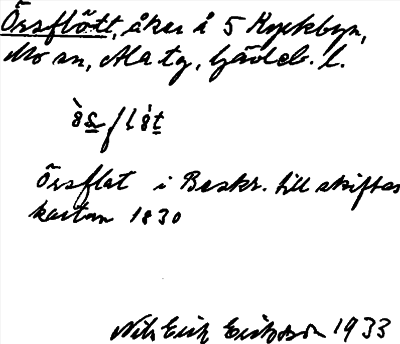 Örsflött, åker å 5 Kyrkbyn,
Mo sn, Ala tg, Gävleb. l.
Örsflat i Beskr. till skiftes
kartan 1830
Nils Erik Eriksson 1933